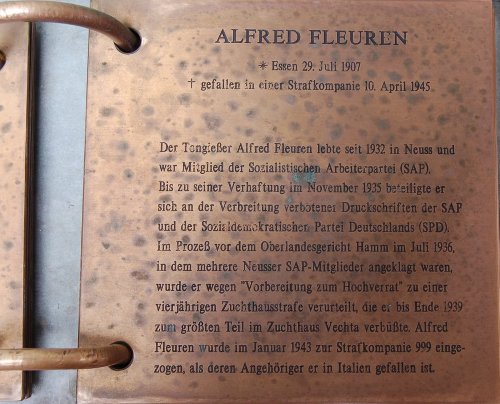 ALFRED FLEUREN
* Essen 29. Juli 1907
† gefallen in einer Strafkompanie 10. April 1945
Der Tongießer Alfred Fleuren lebte seit 1932 in Neuss und
war Mitglied der Sozialistischen Arbeiterpartei (SAP).
Bis zu seiner Verhaftung im November 1935 beteiligte er
sich an der Verbreitung verbotener Druckschriften der SAP
und der Sozialdemokratischen Partei Deutschlands (SPD).
Im Prozeß vor dem Oberlandesgericht Hamm im Juli 1936,
in dem mehrere Neusser SAP-Mitglieder angeklagt waren,
wurde er wegen "Vorbereitung zum Hochverrat" zu einer
vierjährigen Zuchthausstrafe verurteilt, die er bis Ende 1939
zum größten Teil im Zuchthaus Vechta verbüßte. Alfred
Fleuren wurde im Januar 1943 zur Strafkompanie 999 einge-
zogen, als deren Angehöriger er in Italien gefallen ist.